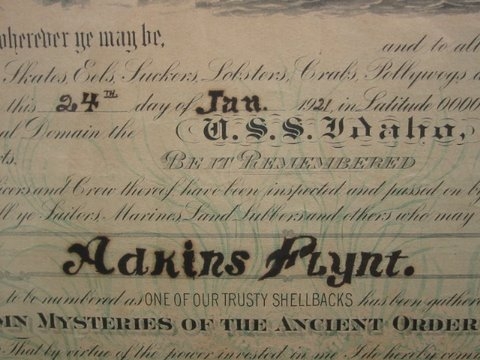 wherever ye may be,
and to all
Skates, Eels, Suckers, Lobsters, Crabs, Pollywogs
this 24TH day of Jan. 1921, in Latitude 0000
Domain the U.S.S. Idaho,
BE IT REMEMBERED
and Crew thereof have been inspected and passed on by
ye Sailors, Marines, Land Lubbers and others who may
Adkins Flynt.
to be numbered as ONE OF OUR TRUSTY SHELLBACKS has been gathered
MYSTERIES OF THE ANCIENT ORDER
That by virtue of the power invested in me I do hereby